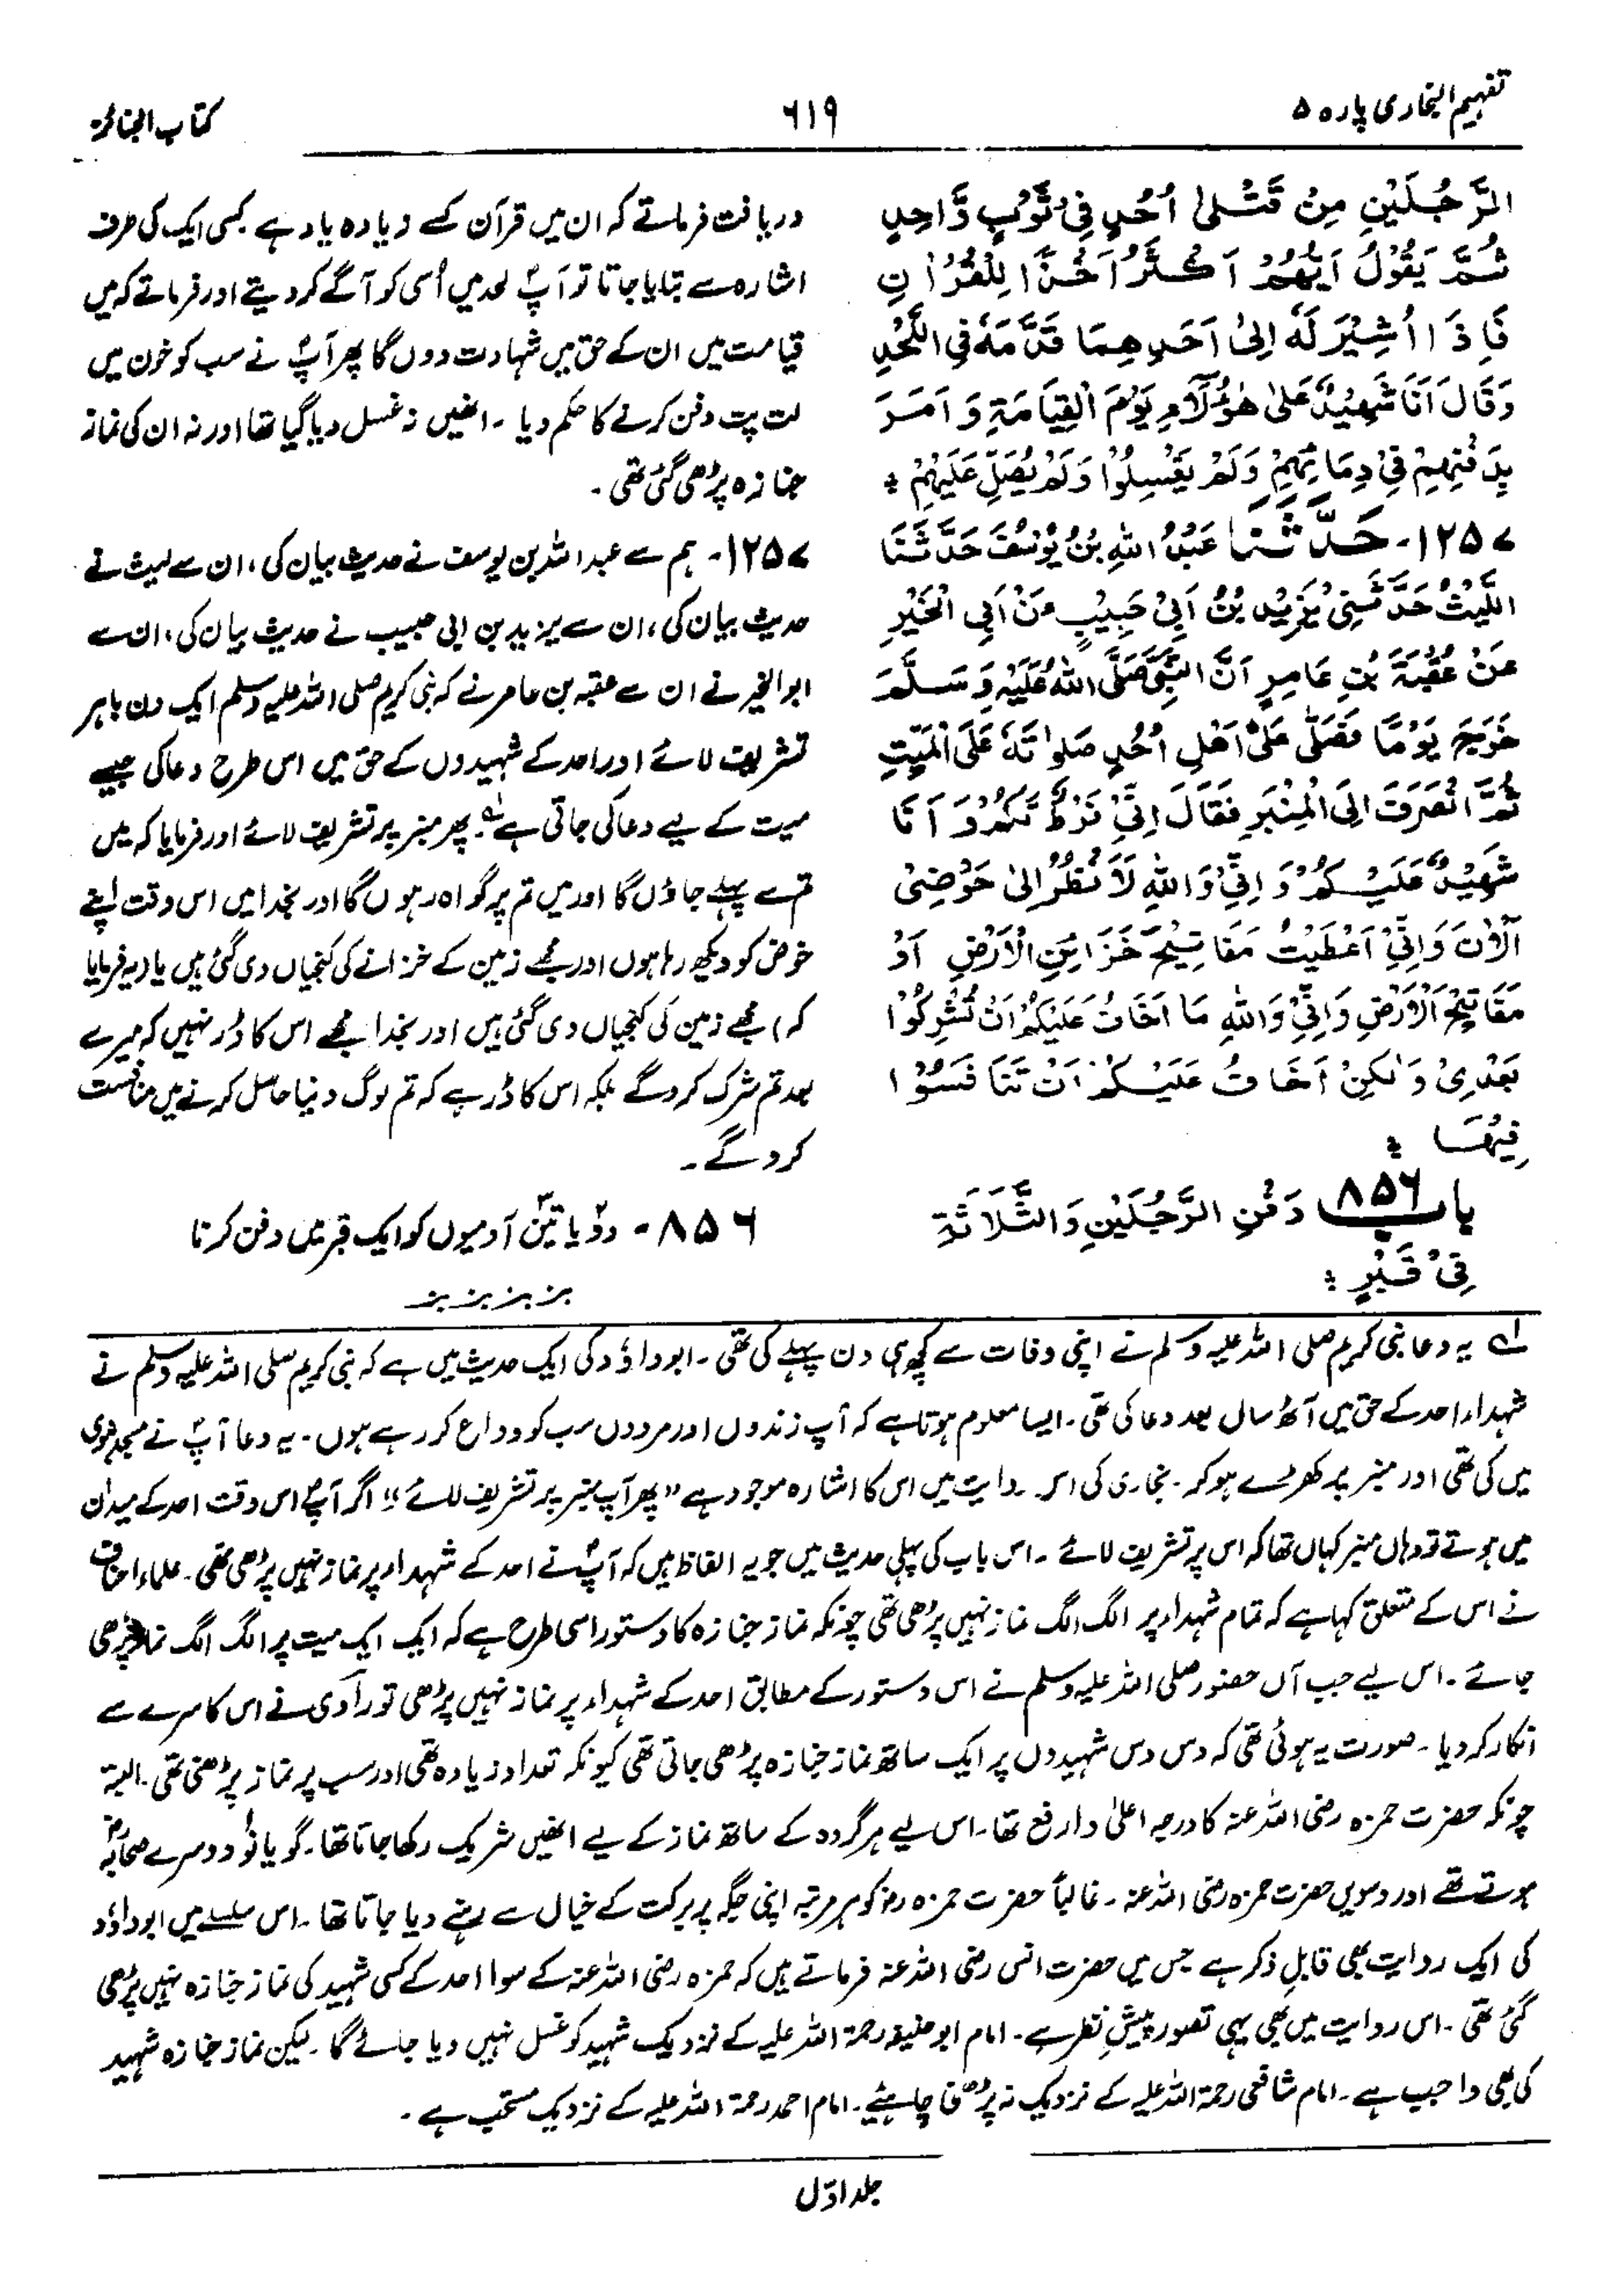 تفہیم البخاری پارہ ۵
۶۱۹
کتاب الجنائز
الرَّجُلَيْنِ مِنْ قَتْلىٰ اُحُدٍ فِيْ ثَوْبٍ وَّاحِدٍ
ثُمَّ يَقُوْلُ اَيُّهُمْ اَكْثَرُ اَخْذًا لِلْقُرْاٰنِ
فَاِذَا اُشِيْرَ لَهٗ اِلىٰ اَحَدِهِمَا قَدَّمَهٗ فِي اللَّحْدِ
وَقَالَ اَنَا شَهِيْدٌ عَلىٰ هٰؤُلَآءِ يَوْمَ الْقِيَامَةِ وَ اَمَرَ
بِدَفْنِهِمْ فِيْ دِمَائِهِمْ وَلَمْ يُغْسِلُوْا وَلَمْ يُصَلِّ عَلَيْهِمْ ؞
۱۲۵۷- حَدَّثَنَا عَبْدُ اللهِ بْنُ يُوْسُفَ حَدَّثَنَا
اللَّيْثُ حَدَّثَنِيْ يَزِيْدُ بْنُ اَبِيْ حَبِيْبٍ عَنْ اَبِي الْخَيْرِ
عَنْ عُقْبَةَ بْنِ عَامِرٍ اَنَّ النَّبِيَّ صَلَّى اللهُ عَلَيْهِ وَسَلَّمَ
خَرَجَ يَوْمًا فَصَلّٰى عَلىٰ اَهْلِ اُحُدٍ صَلٰوتَهٗ عَلَى الْمَيِّتِ
ثُمَّ انْصَرَفَ اِلَى الْمِنْبَرِ فَقَالَ اِنِّيْ فَرَطٌ لَّكُمْ وَ اَنَا
شَهِيْدٌ عَلَيْكُمْ وَ اِنِّيْ وَاللهِ لَاَنْظُرُ اِلىٰ حَوْضِيْ
الْاٰنَ وَاِنِّيْ اُعْطِيْتُ مَفَاتِيْحَ خَزَائِنِ الْاَرْضِ اَوْ
مَفَاتِيْحَ الْاَرْضِ وَاِنِّيْ وَاللهِ مَا اَخَافُ عَلَيْكُمْ اَنْ تُشْرِكُوْا
بَعْدِيْ وَلٰكِنْ اَخَافُ عَلَيْكُمْ اَنْ تَنَافَسُوْا
فِيْهَا ؞
باب ۸۵۶ دَفْنِ الرَّجُلَيْنِ وَالثَّلَاثَةِ
فِيْ قَبْرٍ ؞
دریافت فرماتے کہ ان میں قرآن کسے زیادہ یاد ہے کسی ایک کی طرف
اشارہ سے بتایا جاتا تو آپؐ لحد میں اُسی کو آگے کر دیتے اور فرماتے کہ میں
قیامت میں ان کے حق میں شہادت دوں گا پھر آپؐ نے سب کو خون میں
لت پت دفن کرنے کا حکم دیا ۔ انھیں نہ غسل دیا گیا تھا اور نہ ان کی نماز
جنازہ پڑھی گئی تھی ۔
۱۲۵۷- ہم سے عبداللہ بن یوسف نے حدیث بیان کی، ان سے لیث نے
حدیث بیان کی، ان سے یزید بن ابی حبیب نے حدیث بیان کی، ان سے
ابوالخیر نے ان سے عقبہ بن عامر نے کہ نبی کریم صلی اللہ علیہ وسلم ایک دن باہر
تشریف لائے اور احد کے شہیدوں کے حق میں اس طرح دعا کی جیسے
میت کے لیے دعا کی جاتی ہے ؎۱۔ پھر منبر پر تشریف لائے اور فرمایا کہ میں
تم سے پہلے جاؤں گا اور میں تم پر گواہ رہوں گا اور بخدا میں اس وقت اپنے
حوض کو دیکھ رہا ہوں اور مجھے زمین کے خزانے کی کنجیاں دی گئی ہیں یا (یہ فرمایا
کہ) مجھے زمین کی کنجیاں دی گئی ہیں اور بخدا مجھے اس کا ڈر نہیں کہ میرے
بعد تم شرک کرو گے بلکہ اس کا ڈر ہے کہ تم لوگ دنیا حاصل کرنے میں منافست
کرو گے ۔
۸۵۶ - دو یا تین آدمیوں کو ایک قبر میں دفن کرنا
؎۱ یہ دعا نبی کریم صلی اللہ علیہ وسلم نے اپنی وفات سے کچھ ہی دن پہلے کی تھی ۔ ابوداؤد کی ایک حدیث میں ہے کہ نبی کریم صلی اللہ علیہ وسلم نے
شہداء احد کے حق میں آٹھ سال بعد دعا کی تھی ۔ ایسا معلوم ہوتا ہے کہ آپ زندوں اور مردوں سب کو وداع کر رہے ہوں ۔ یہ دعا آپؐ نے مسجد نبوی
میں کی تھی اور منبر پر کھڑے ہو کر ۔ بخاری کی اس روایت میں اس کا اشارہ موجود ہے "پھر آپ منبر پر تشریف لائے" اگر آپؐ اس وقت احد کے میدان
میں ہوتے تو وہاں منبر کہاں تھا کہ اس پر تشریف لائے ۔ اس باب کی پہلی حدیث میں جو یہ الفاظ ہیں کہ آپؐ نے احد کے شہداء پر نماز نہیں پڑھی تھی ۔ علماء احناف
نے اس کے متعلق کہا ہے کہ تمام شہداء پر الگ الگ نماز نہیں پڑھی تھی چونکہ نماز جنازہ کا دستور اسی طرح ہے کہ ایک ایک میت پر الگ الگ نماز پڑھی
جائے ۔ اس لیے جب آں حضور صلی اللہ علیہ وسلم نے اس دستور کے مطابق احد کے شہداء پر نماز نہیں پڑھی تو راوی نے اس کا سرے سے
انکار کر دیا ۔ صورت یہ ہوئی تھی کہ دس دس شہیدوں پر ایک ساتھ نماز جنازہ پڑھی جاتی تھی کیونکہ تعداد زیادہ تھی اور سب پر نماز پڑھنی تھی ۔ البتہ
چونکہ حضرت حمزہ رضی اللہ عنہ کا درجہ اعلیٰ و ارفع تھا ۔ اس لیے ہر گروہ کے ساتھ نماز کے لیے انھیں شریک رکھا جاتا تھا ۔ گویا نو دوسرے صحابہؓ
ہوتے تھے اور دسویں حضرت حمزہ رضی اللہ عنہ ۔ غالباً حضرت حمزہ رضؓ کو ہر مرتبہ اپنی جگہ پر برکت کے خیال سے رہنے دیا جاتا تھا ۔ اس سلسلے میں ابوداؤد
کی ایک روایت بھی قابلِ ذکر ہے جس میں حضرت انس رضی اللہ عنہ فرماتے ہیں کہ حمزہ رضی اللہ عنہ کے سوا احد کے کسی شہید کی نماز جنازہ نہیں پڑھی
گئی تھی ۔ اس روایت میں بھی یہی تصور پیشِ نظر ہے ۔ امام ابوحنیفہ رحمۃ اللہ علیہ کے نزدیک شہید کو غسل نہیں دیا جائے گا ۔ لیکن نماز جنازہ شہید
کی بھی واجب ہے ۔ امام شافعی رحمۃ اللہ علیہ کے نزدیک نہ پڑھنی چاہیئے ۔ امام احمد رحمۃ اللہ علیہ کے نزدیک مستحب ہے ۔
جلد اوّل